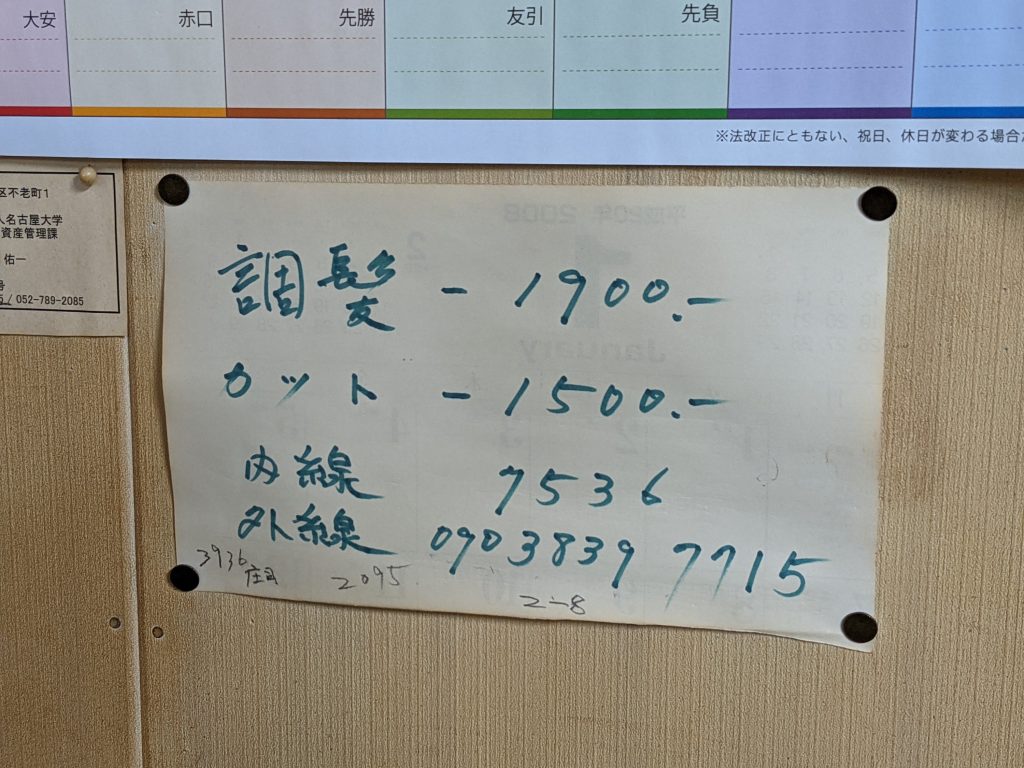 大安 赤口 先勝 友引 先負
※法改正にともない、祝日、休日が変わる場合
区不老町1
人名古屋大学
資産管理課
佑一
号
/ 052-789-2085
調髪 - 1900.-
カット - 1500.-
内線 7536
外線 090 3839 7715
3936 2095
2-8